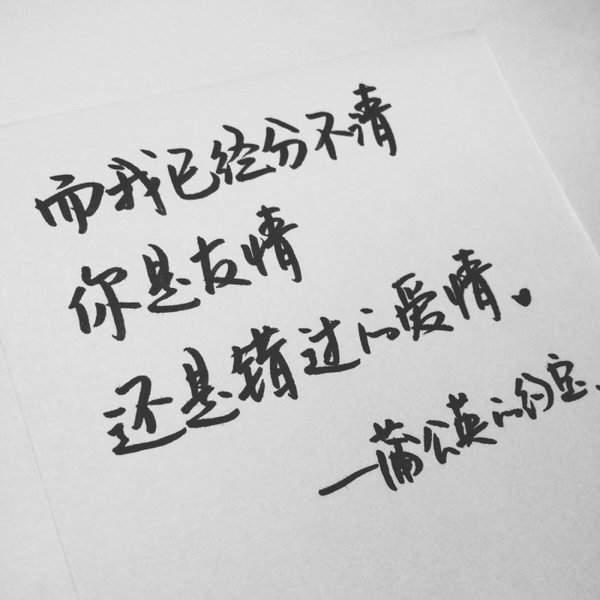 而我已经分不清
你是友情
还是错过的爱情。
—蒲公英的约定.